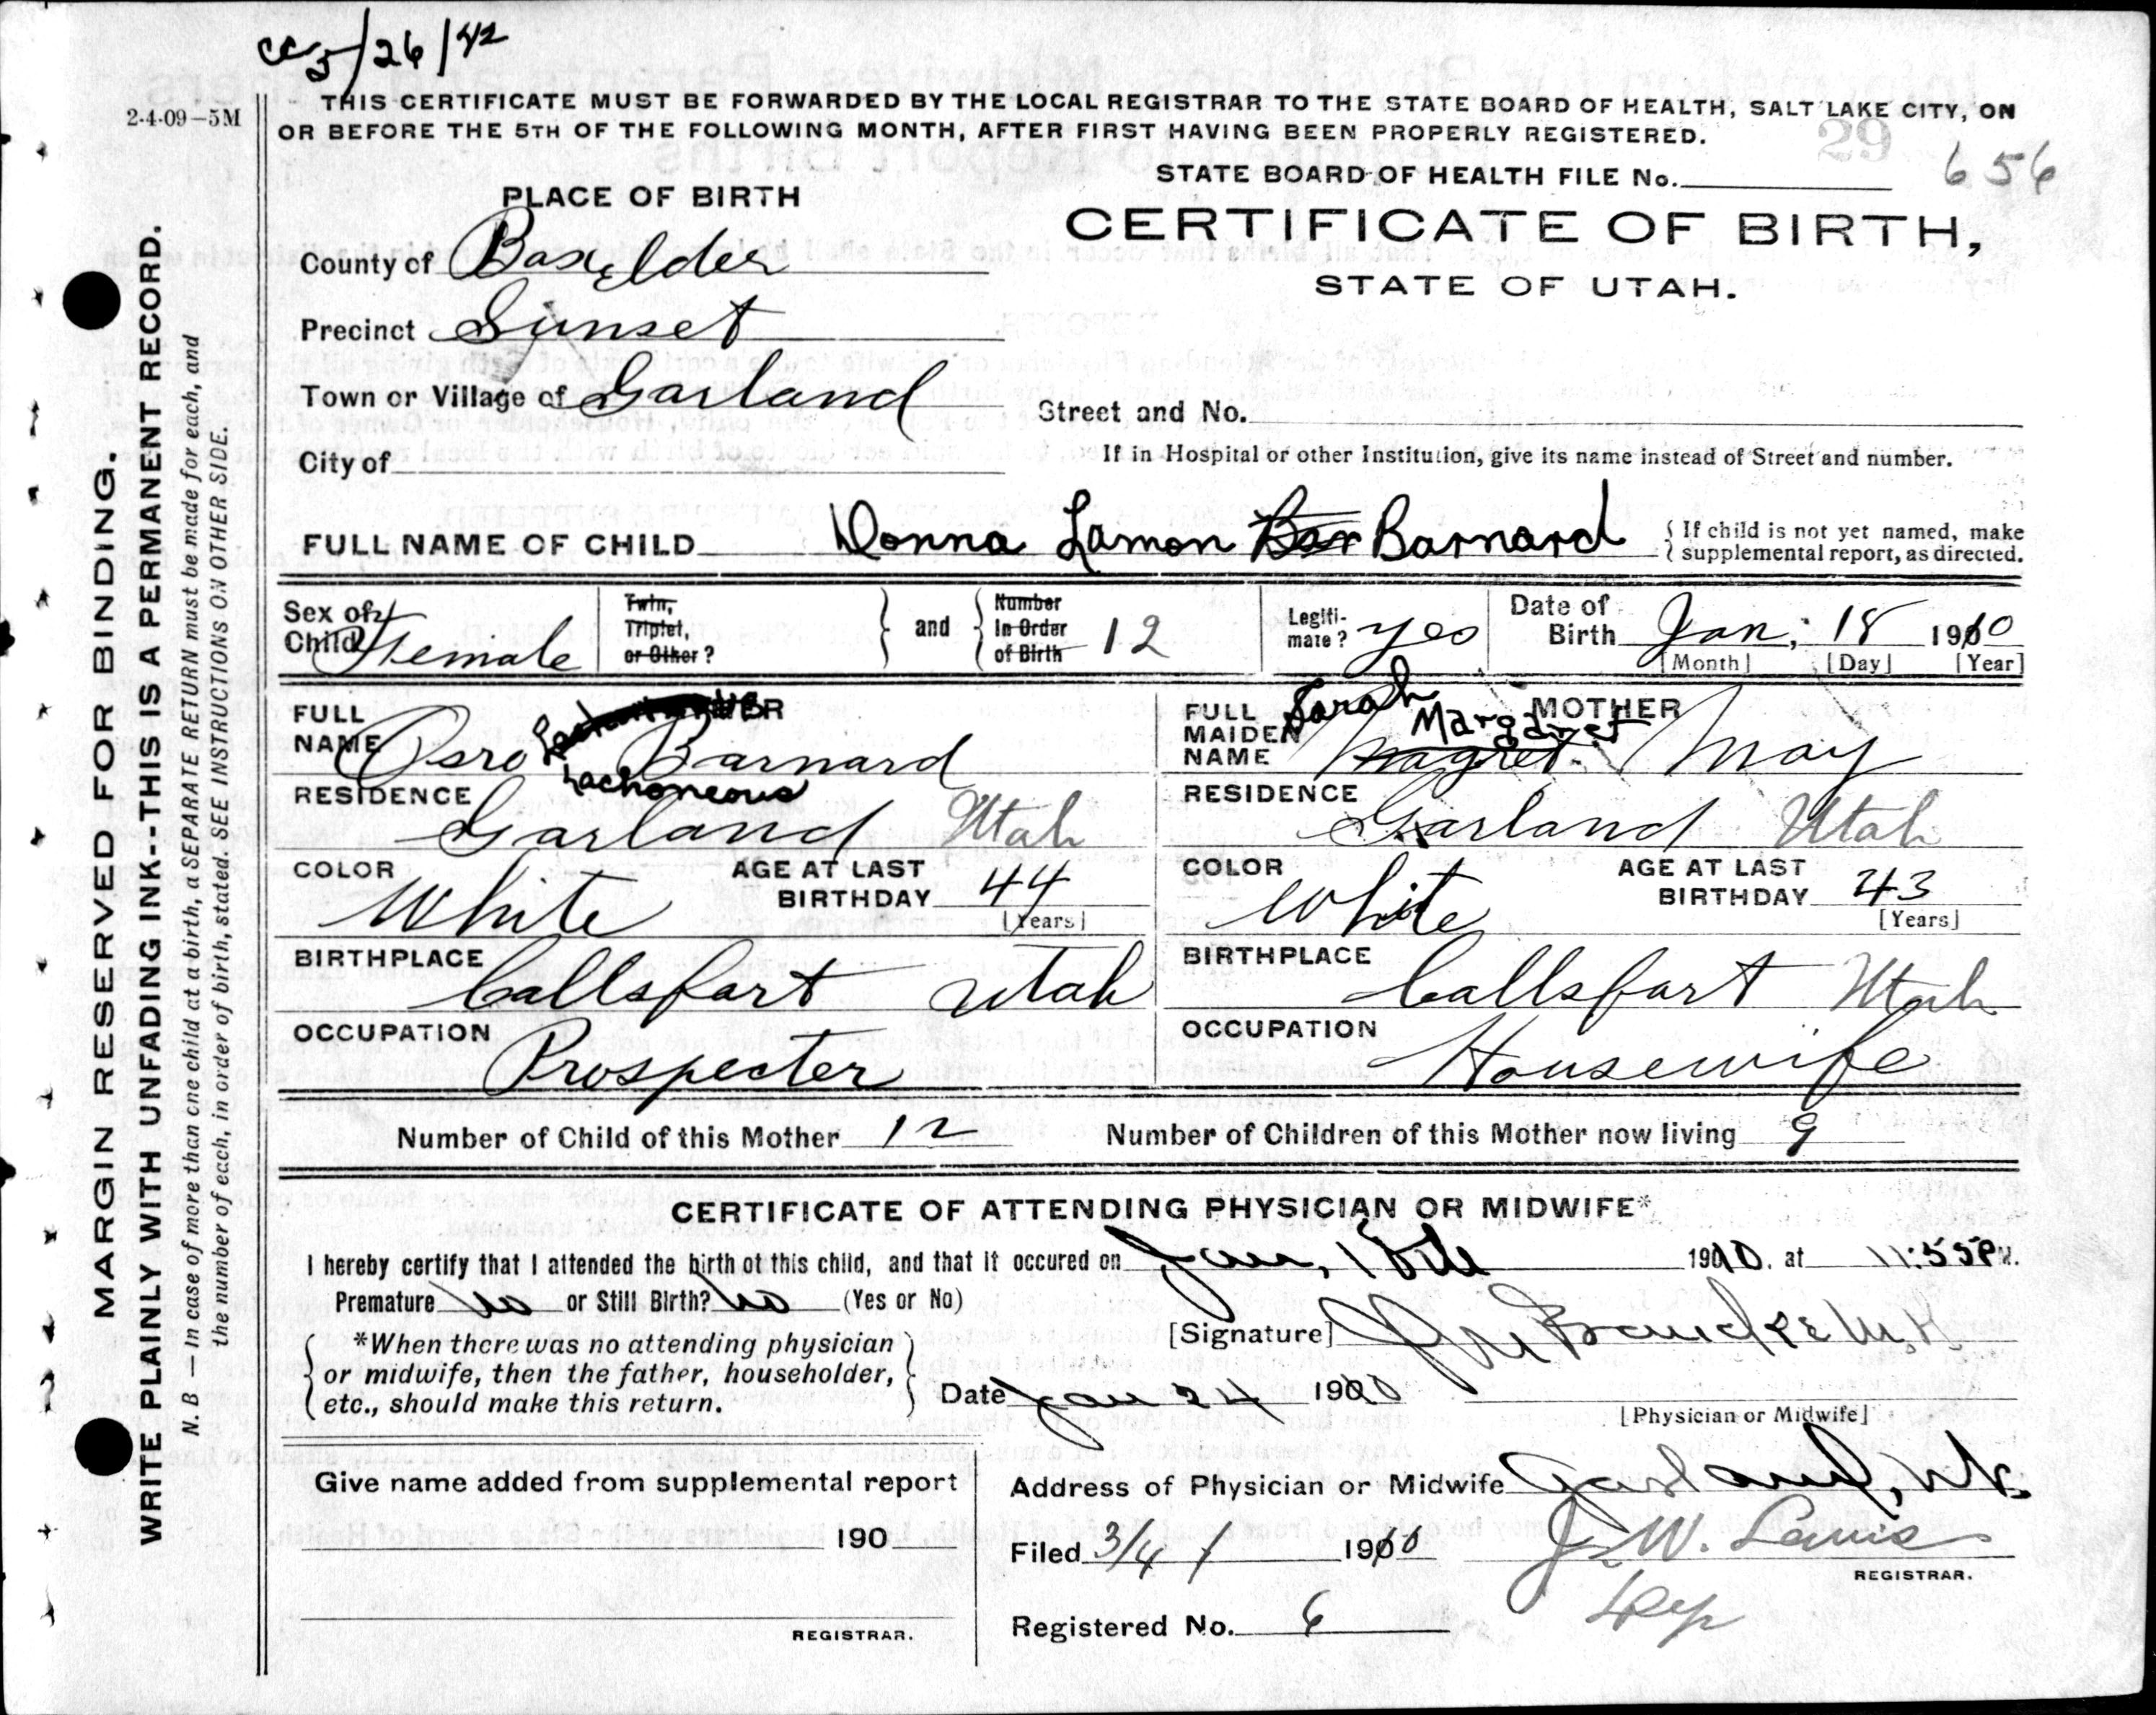 cc 5/26/42
2-4-09—5M
THIS CERTIFICATE MUST BE FORWARDED BY THE LOCAL REGISTRAR TO THE STATE BOARD OF HEALTH, SALT LAKE CITY, ON
OR BEFORE THE 5TH OF THE FOLLOWING MONTH, AFTER FIRST HAVING BEEN PROPERLY REGISTERED.
29
STATE BOARD OF HEALTH FILE No. 656
PLACE OF BIRTH
CERTIFICATE OF BIRTH,
STATE OF UTAH.
County of Boxelder
Precinct Sunset
Town or Village of Garland
Street and No.
City of
If in Hospital or other Institution, give its name instead of Street and number.
FULL NAME OF CHILD Donna Lamon Bar Barnard
If child is not yet named, make
supplemental report, as directed.
Sex of Child Female
Twin, Triplet, or Other?
and
Number In Order of Birth 12
Legitimate? yes
Date of Birth Jan, 18 1910
[Month] [Day] [Year]
FULL NAME Osro Lachoneous Barnard
MOTHER
FULL MAIDEN NAME Sarah Margaret Magret May
RESIDENCE Garland Utah
RESIDENCE Garland Utah
COLOR White
AGE AT LAST BIRTHDAY 44 [Years]
COLOR White
AGE AT LAST BIRTHDAY 43 [Years]
BIRTHPLACE Callsfort Utah
BIRTHPLACE Callsfort Utah
OCCUPATION Prospecter
OCCUPATION Housewife
Number of Child of this Mother 12
Number of Children of this Mother now living 9
CERTIFICATE OF ATTENDING PHYSICIAN OR MIDWIFE*
I hereby certify that I attended the birth of this child, and that it occured on Jan, 18th 1910. at 11:55 P M.
Premature no or Still Birth? no (Yes or No)
[Signature]
*When there was no attending physician
or midwife, then the father, householder,
etc., should make this return.
Date Jan 24 1910
[Physician or Midwife]
Give name added from supplemental report
190
REGISTRAR.
Address of Physician or Midwife Garland, Ut.
Filed 3/4 1910
J. W. Lewis
REGISTRAR.
Dep
Registered No. 6
MARGIN RESERVED FOR BINDING.
WRITE PLAINLY WITH UNFADING INK--THIS IS A PERMANENT RECORD.
N. B — In case of more than one child at a birth, a SEPARATE RETURN must be made for each, and
the number of each, in order of birth, stated. SEE INSTRUCTIONS ON OTHER SIDE.